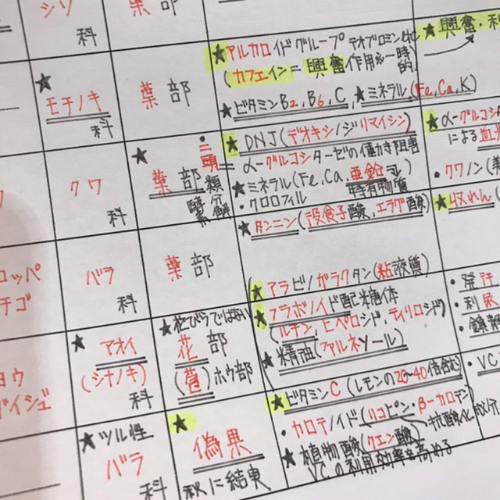 シソ
科
葉部
★アルカロイドグループ テオブロミン
(カフェイン=興奮作用 一時的
★ビタミンB2,B6,C ★ミネラル(Fe,Ca,K)
★興奮・利
★
モチノキ
科
葉部
★DNJ(デオキシノジリマイシン)
α-グルコシターゼの働き阻害
★ミネラル(Fe,Ca,亜鉛
・クロロフィル
★α-グルコシ
による血
・クワノン(
クワ
科
★葉部
★タンニン(没食子酸、エラグ酸)
★収れん(
ロッパ
チゴ
バラ
科
葉部
★アラビノガラクタン(粘液質)
★フラボノイド配糖体
(ルチン、ヒペロシド、ティリロシド)
★精油(ファルネソール)
・発汗
・利尿
・鎮
ヨウ
ダイジュ
★アオイ
(シナノキ)
科
★花びらではない
花部
(苞)ホウ部
★ビタミンC(レモンの20~40倍含む)
・カロテノイド(リコピン、β-カロテン)
★植物酸(クエン酸)
VCの利用効率を高める
・VC
★ツル性
バラ
科
★
偽果
秋に結実